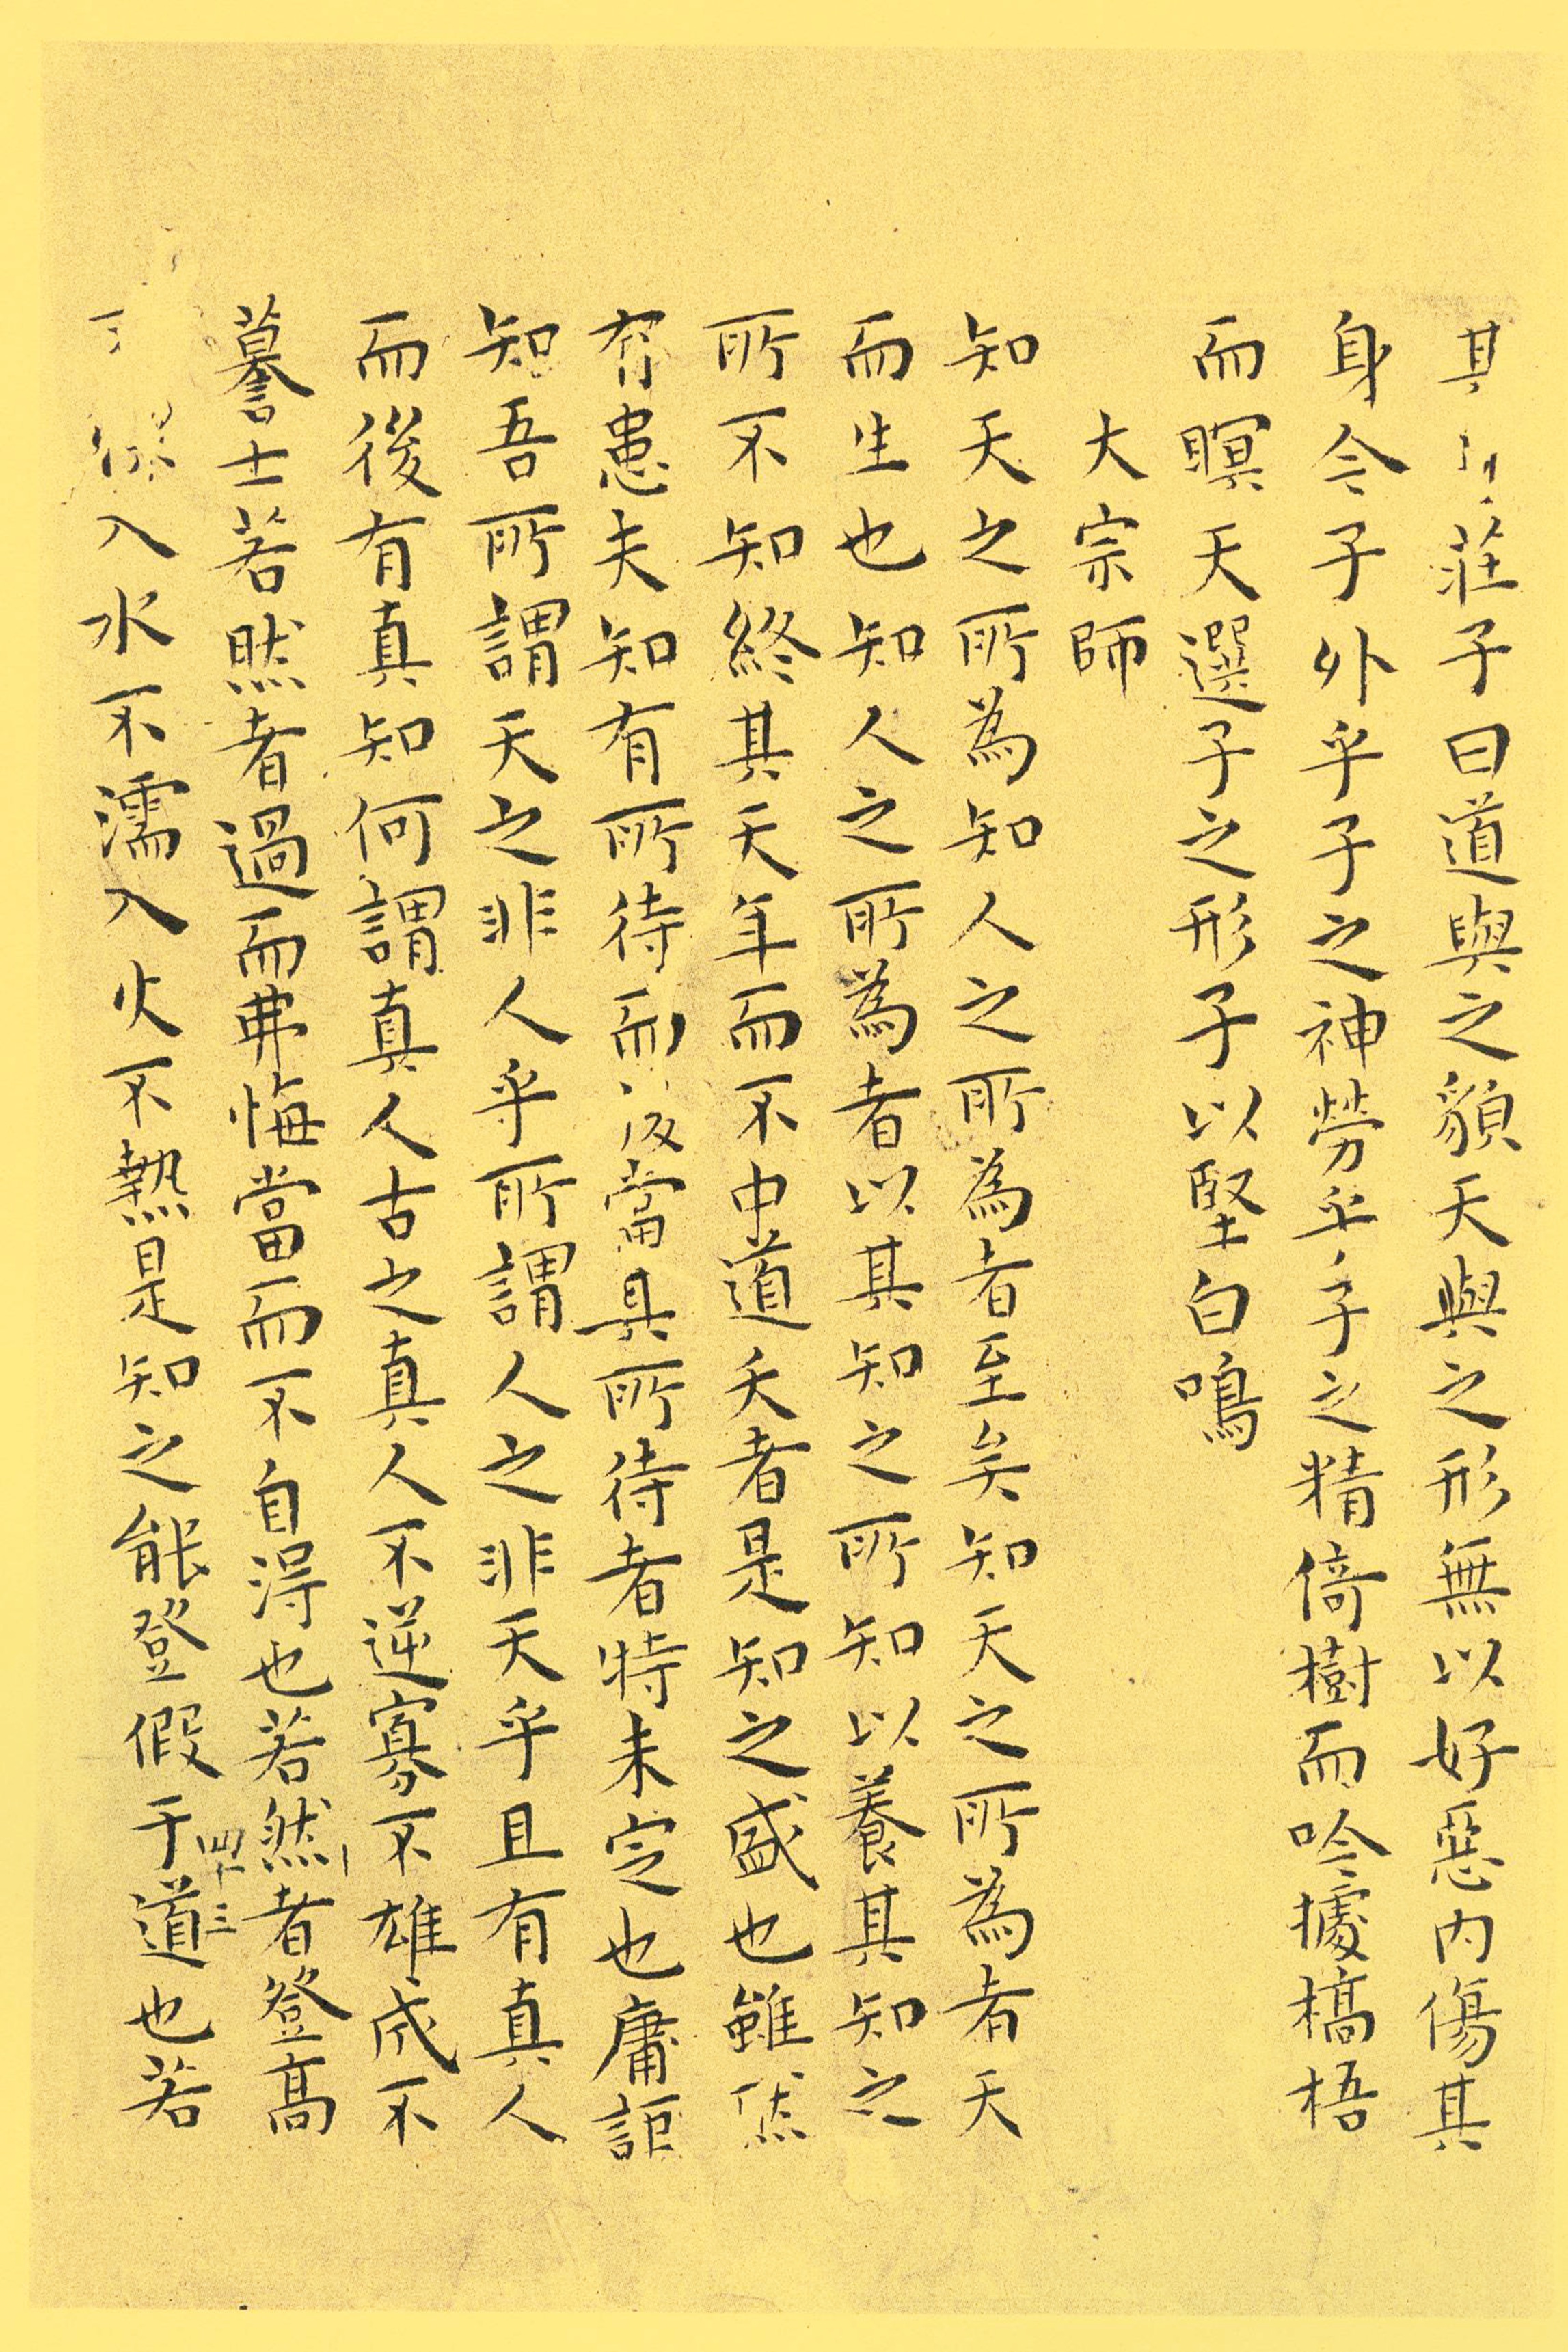 其莊子曰道與之貌天與之形無以好惡內傷其
身今子外乎子之神勞乎子之精倚樹而吟據槁梧
而瞑天選子之形子以堅白鳴
大宗師
知天之所為知人之所為者至矣知天之所為者天
而生也知人之所為者以其知之所知以養其知之
所不知終其天年而不中道夭者是知之盛也雖然
有患夫知有所待而後當其所待者特未定也庸詎
知吾所謂天之非人乎所謂人之非天乎且有真人
而後有真知何謂真人古之真人不逆寡不雄成不
謩士若然者過而弗悔當而不自得也若然者登高
入水不濡入火不熱是知之能登假于道也若
四十三